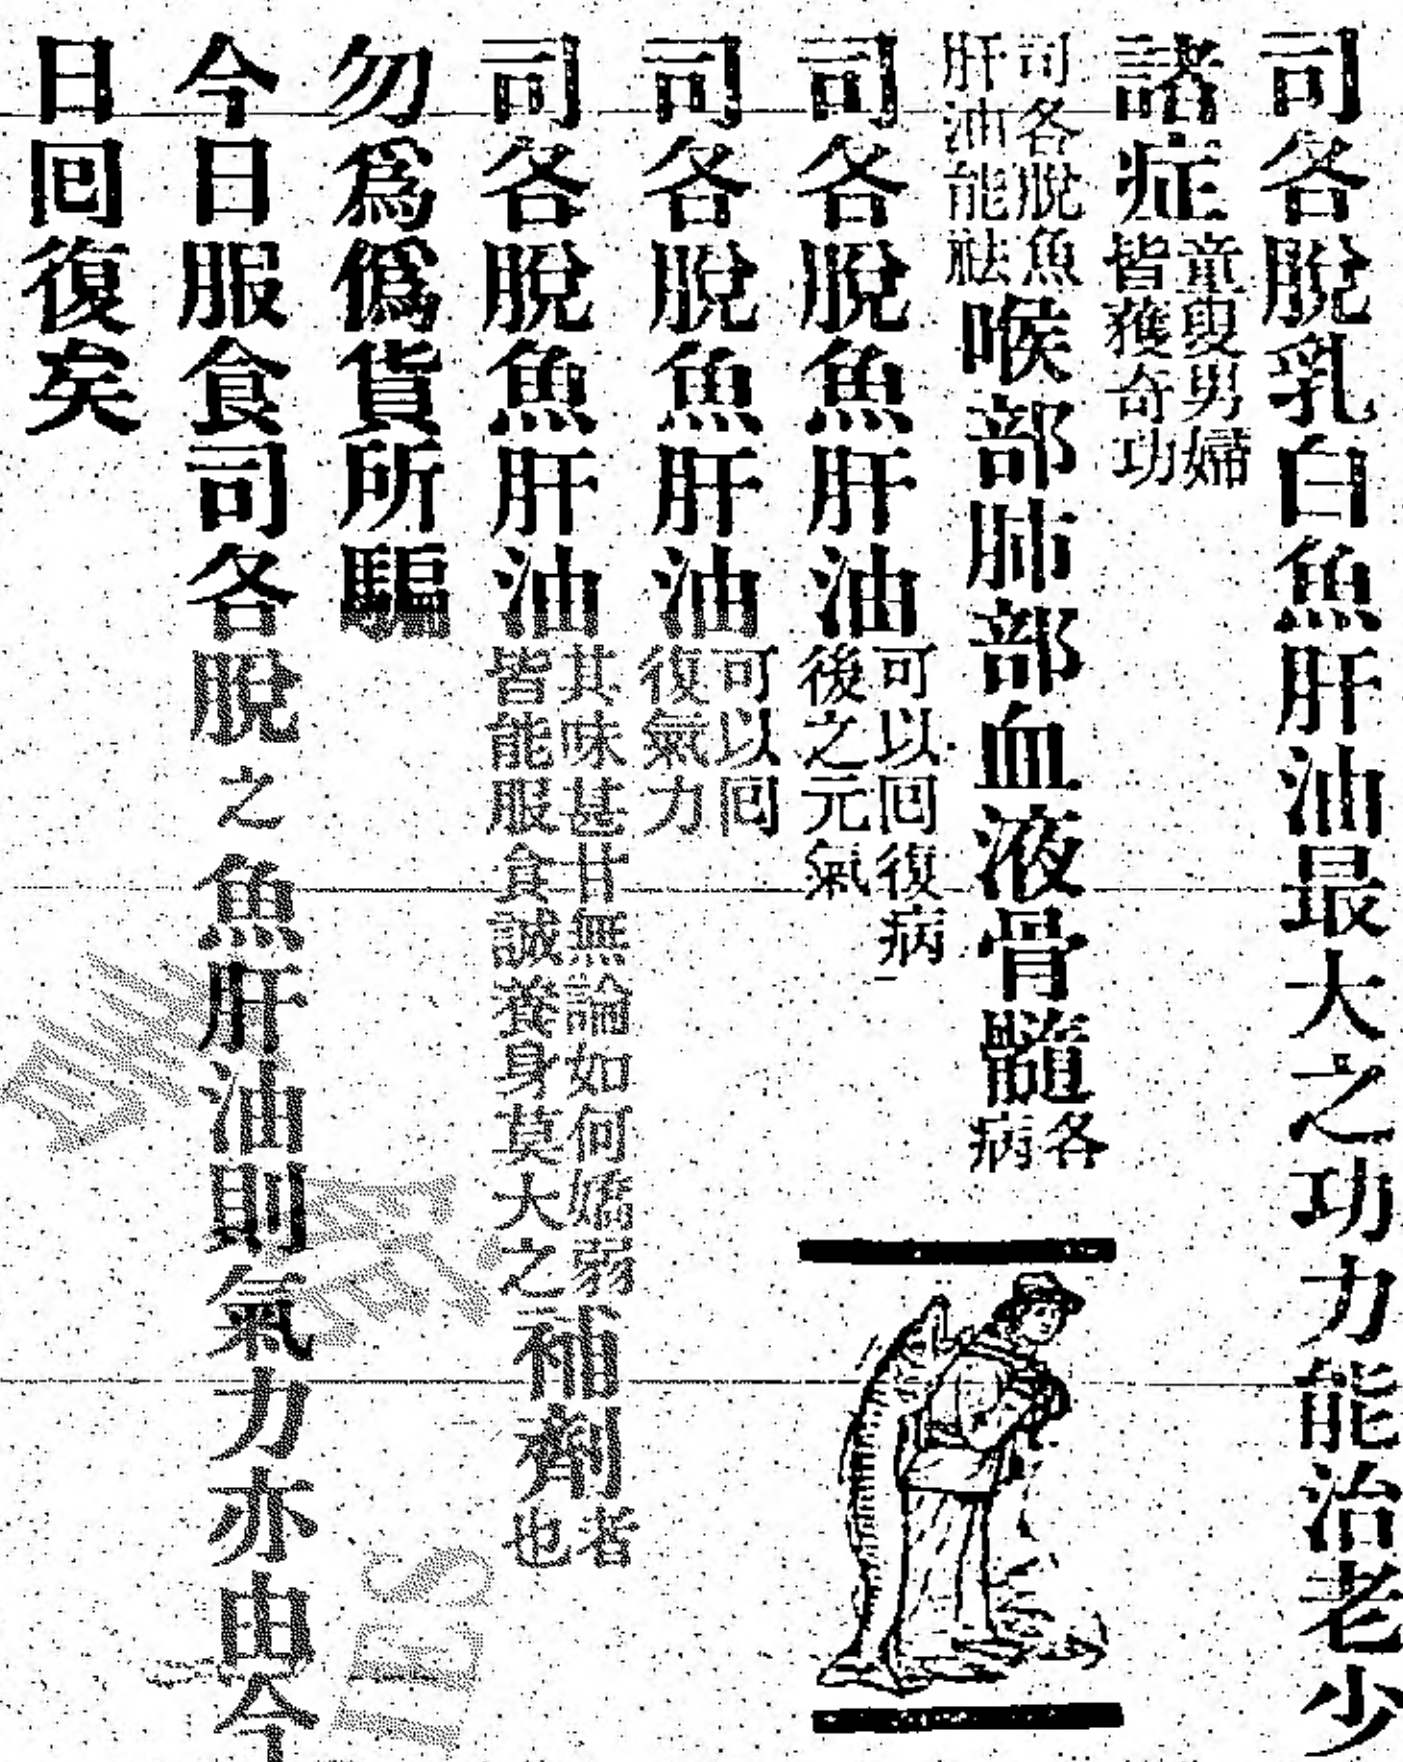 司各脫乳白魚肝油最大之功力能治老少
諸症童叟男婦皆獲奇功
司各脫魚肝油能祛喉部肺部血液骨髓各病
司各脫魚肝油可以回復病後之元氣
司各脫魚肝油可以回復氣力
司各脫魚肝油其味甚甘無論如何嬌弱皆能服食誠養身莫大之補劑者也
勿爲僞貨所騙
今日服食司各脫之魚肝油則氣力亦由今
日回復矣